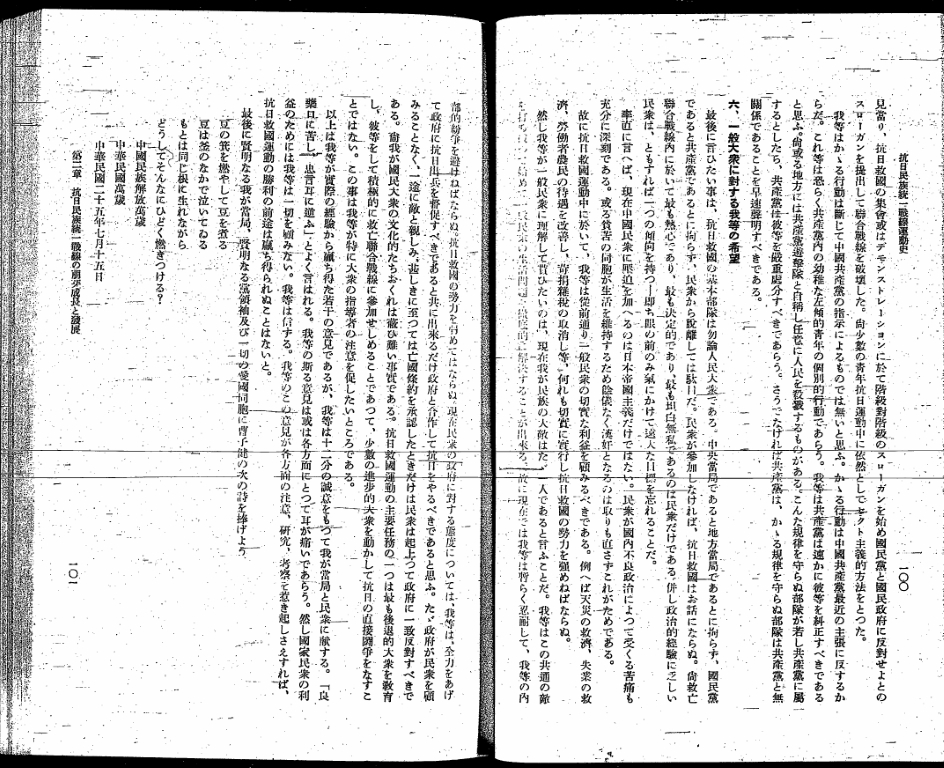 抗日民族統一戰線運動史
一〇〇
見當り、抗日救國の集會或はデモンストレーションに於て階級對階級のスローガンを始め國民黨と國民政府に反對せよとの
スローガンを提出して聯合戰線を破壞した。尙少數の青年抗日運動中に依然としてセクト主義的方法をとつた。
我等はかゝる行動は斷じて中國共產黨の指示によるものでは無いと思ふ。かゝる行動は中國共產黨最近の主張に反するか
らだ。これ等は恐らく共產黨內の幼稚な左傾的青年の個別的行動であらう。我等は共產黨は速かに彼等を糾正すべきである
と思ふ。尙或る地方には共產黨遊擊隊と自稱し任意に人民を殺戮するものがある。こんな規律を守らぬ部隊が若し共產黨に屬
するとしたら、共產黨は彼等を嚴重處分すべきであらう。さうでなければ共產黨は、かゝる規律を守らぬ部隊は共產黨と無
關係であることを早速聲明すべきである。
六、一般大衆に對する我等の希望
最後に言ひたい事は、抗日救國の基本部隊は勿論人民大衆である。中央當局であると地方當局であるとに拘らず、國民黨
であると共產黨であるとに拘らず、民衆から脫離しては駄目だ。民衆が參加しなければ、抗日救國はお話にならぬ。尙救亡
聯合戰線內に於いて最も熱心であり、最も決定的であり、最も坦白無私であるのは民衆だけである。併し政治的經驗に乏しい
民衆は、ともすれば一つの傾向を持つ—卽ち眼の前のみ氣にかけて遠大な目標を忘れることだ。
率直に言へば、現在中國民衆に壓迫を加へるのは日本帝國主義だけではない。民衆が國內不良政治によつて受くる苦痛も
充分に深刻である。或る貧苦の同胞が生活を維持するため餘儀なく漢奸となるのは取りも直さずこれがためである。
故に抗日救國運動中に於いて、我等は從前通り一般民衆の切實な利益を顧みるべきである。例へば天災の救濟、失業の救
濟、勞働者農民の待遇を改善し、苛捐雜稅の取消し等、何れも切實に實行し抗日救國の勢力を强めねばならぬ。
然し我等が一般民衆に理解して貰ひたいのは、現在我が民族の大敵はたゞ一人であると言ふことだ。我等はこの共通の敵
一般民衆の生活問題を解決することが出來る。故に現在では我等は暫らく忍耐して、我等の內
部的紛爭を避けねばならぬ。抗日救國の勢力を弱めてはならぬ。現在民衆の政府に對する態度については、我等は、全力をあげ
て政府に抗日出兵を督促すべきであると共に出來るだけ政府と合作して抗日をやるべきであると思ふ。たゞ政府が民衆を顧
みることなく、一途に敵と親しみ、甚しきに至つては亡國條約を承認したときだけは民衆は起上つて政府に一致反對すべきで
ある。尙我が國民大衆の文化的たちおくれは蔽ひ難い事實である。抗日救國運動の主要任務の一つは最も後退的大衆を敎育
し、彼等をして積極的に救亡聯合戰線に參加せしめることであつて、少數の進步的大衆を動かして抗日の直接鬪爭をなすこ
とではない。この事は我等が特に大衆の指導者の注意を促したいところである。
以上は我等が實際の經驗から贏ち得た若干の意見であるが、我等は十二分の誠意をもつて我が當局と民衆に獻する。「良
藥口に苦し、忠言耳に逆ふ」とよく言はれる。我等の斯る意見は或は各方面にとつて耳が痛いであらう。然し國家民衆の利
益のためには我等は一切を顧みない。我等は信する。我等のこの意見が各方面の注意、研究、考察を惹き起しさえすれば、
抗日救國運動の勝利の前途は贏ち得られぬことはないと。
最後に賢明なる我が當局、賢明なる黨領袖及び一切の愛國同胞に曹子健の次の詩を捧げよう。
豆の箕を燃やして豆を煮る
豆は釜のなかで泣いてゐる
もとは同じ根に生れながら
どうしてそんなにひどく燃きつける？
中國民族解放萬歲
中華民國萬歲
中華民國二十五年七月十五日
第二章 抗日民族統一戰線の萌芽成長と發展
一〇一